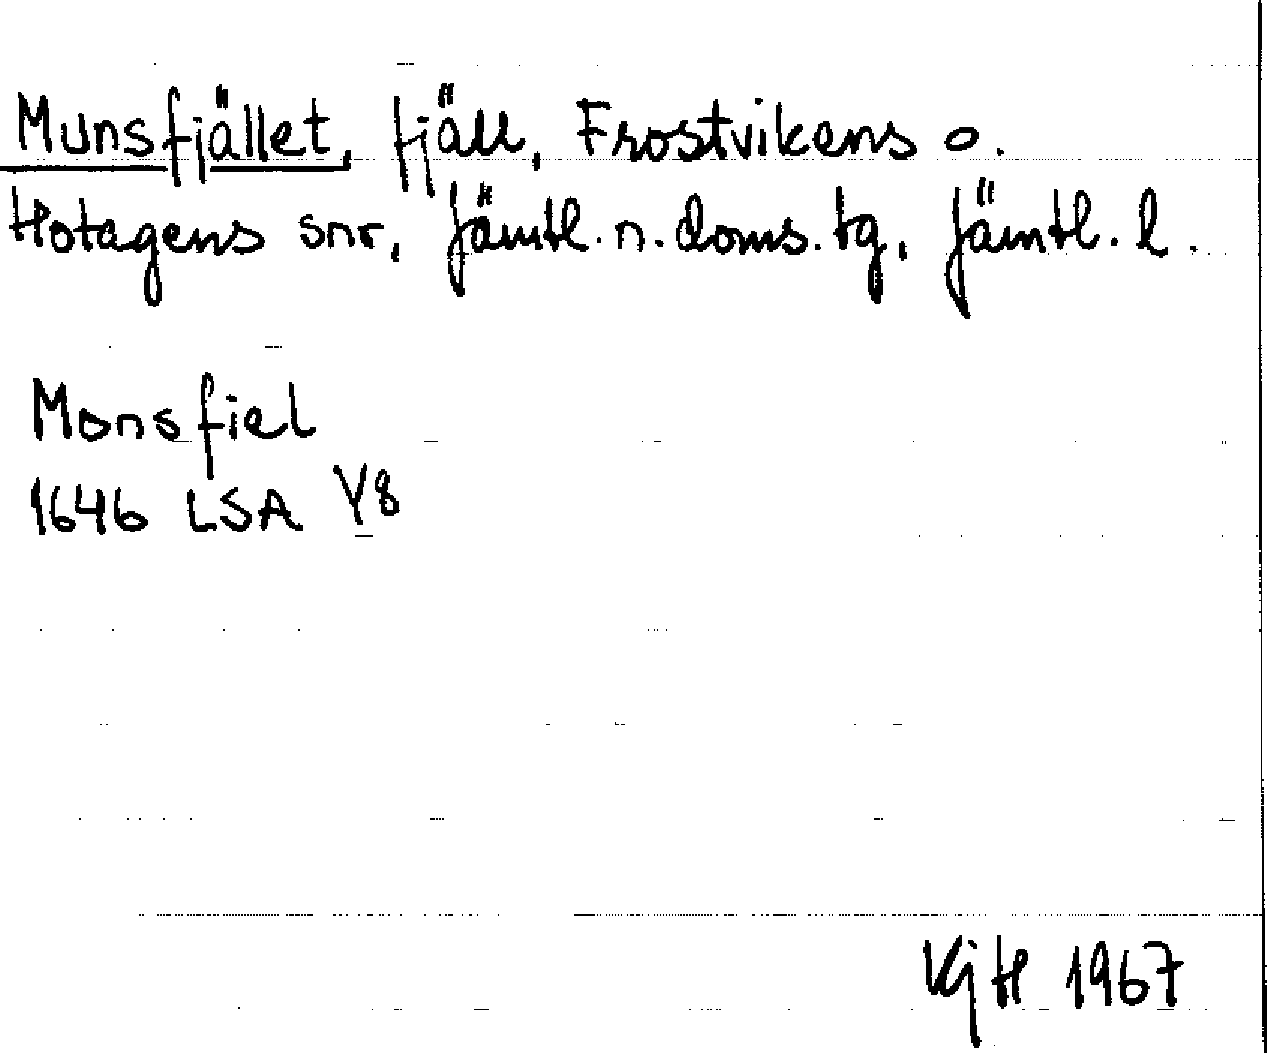 Munsfjället, fjäll, Frostvikens o.
Hotagens snr, Jämtl. n. doms. tg, Jämtl. l.
Monsfiel
1646 LSA Y8
KjH 1967